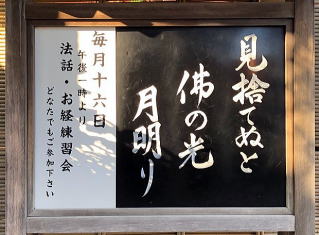 見捨てぬと
佛の光
月明り
毎月十六日
午後一時より
法話・お経練習会
どなたでもご参加下さい